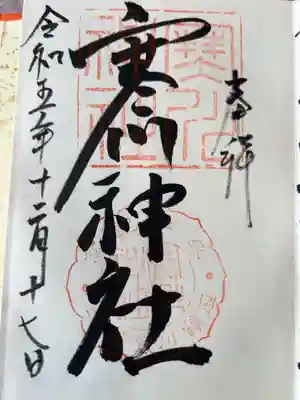 奉拝
寒川神社
令和五年十二月十七日